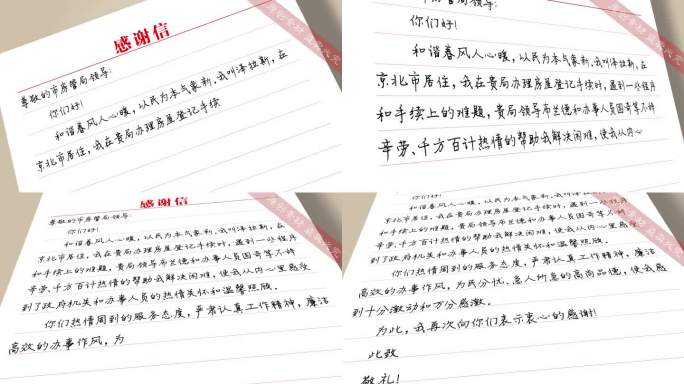 感谢信
尊敬的市房管局领导:
你们好!
和谐春风人心暖,以民为本气象新。我叫泽拉斯,在
京北市居住,我在贵局办理房屋登记手续
领导:
你们好!
和谐春风人心暖,以民为本气象新。我叫泽拉斯,在
京北市居住,我在贵局办理房屋登记手续时,遇到一些程序
和手续上的难题,贵局领导布兰德和办事人员图奇等不辞
辛劳、千方百计热情的帮助我解决困难,使我从内心
感谢信
尊敬的市房管局领导:
你们好!
和谐春风人心暖,以民为本气象新。我叫泽拉斯,在
京北市居住,我在贵局办理房屋登记手续时,遇到一些程序
和手续上的难题,贵局领导布兰德和办事人员图奇等不辞
辛劳、千方百计热情的帮助我解决困难,使我从内心里感受
到了政府机关和办事人员的热情关怀和温馨照顾。
你们热情周到的服务态度,严肃认真工作精神,廉洁
高效的办事作风,为
你们好!
和谐春风人心暖,以民为本气象新。我叫泽拉斯,在
京北市居住,我在贵局办理房屋登记手续时,遇到一些程序
和手续上的难题,贵局领导布兰德和办事人员图奇等不辞
辛劳、千方百计热情的帮助我解决困难,使我从内心里感受
到了政府机关和办事人员的热情关怀和温馨照顾。
你们热情周到的服务态度,严肃认真工作精神,廉洁
高效的办事作风,为民分忧,急人所急的高尚品德,使我感
到十分激动和万分感激。
为此,我再次向你们表示衷心的感谢!
此致
敬礼!